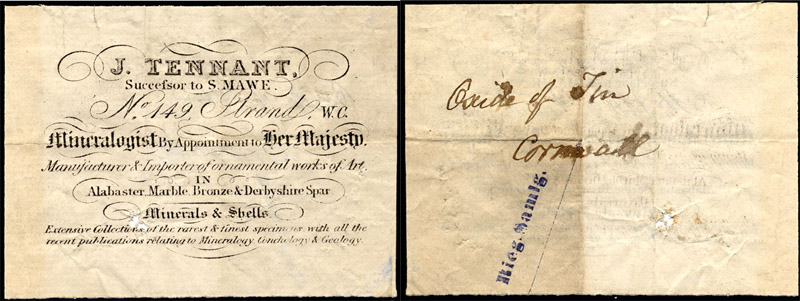 J. TENNANT,
Successor to S. MAWE.
No. 149, Strand, W.C.
Mineralogist By Appointment to Her Majesty,
Manufacturer & Importer of ornamental works of Art,
IN
Alabaster, Marble, Bronze & Derbyshire Spar
Minerals & Shells
Extensive Collections of the rarest & finest specimens with all the
recent publications relating to Mineralogy, Conchology & Geology.
Oxide of Tin
Cornwall
Rieg. Samlg.